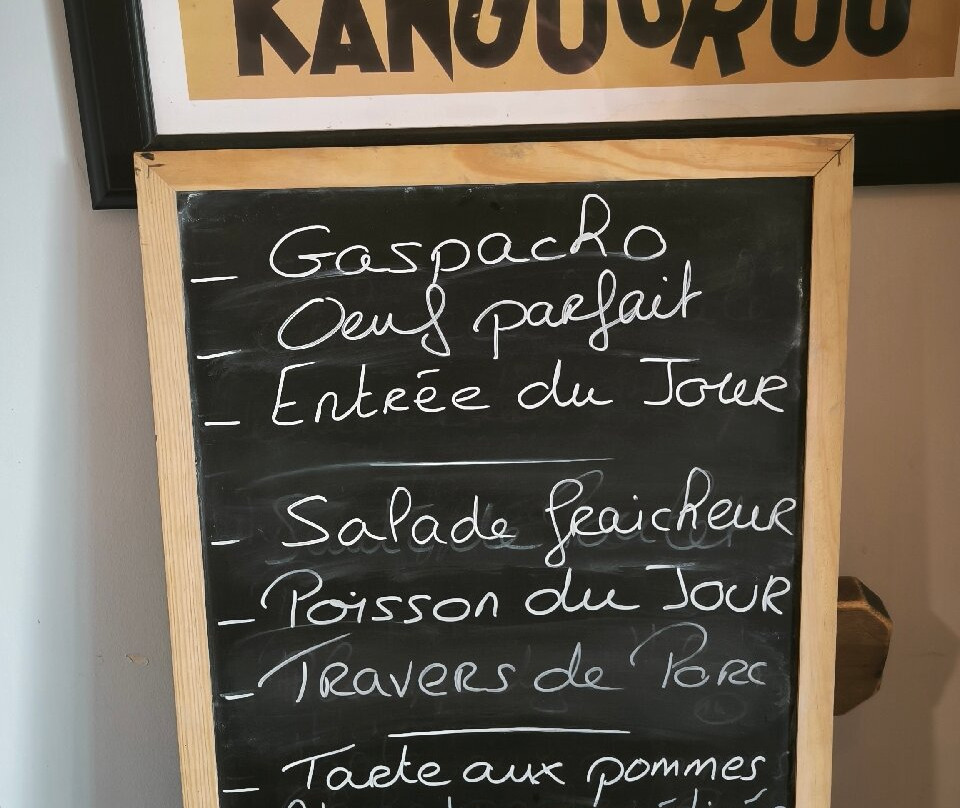 KANGOUROU
_ Gaspacho
_ Oeuf parfait
_ Entrée du Jour
_ Salade fraicheur
_ Poisson du Jour
_ Travers de Porc
_ Tarte aux pommes